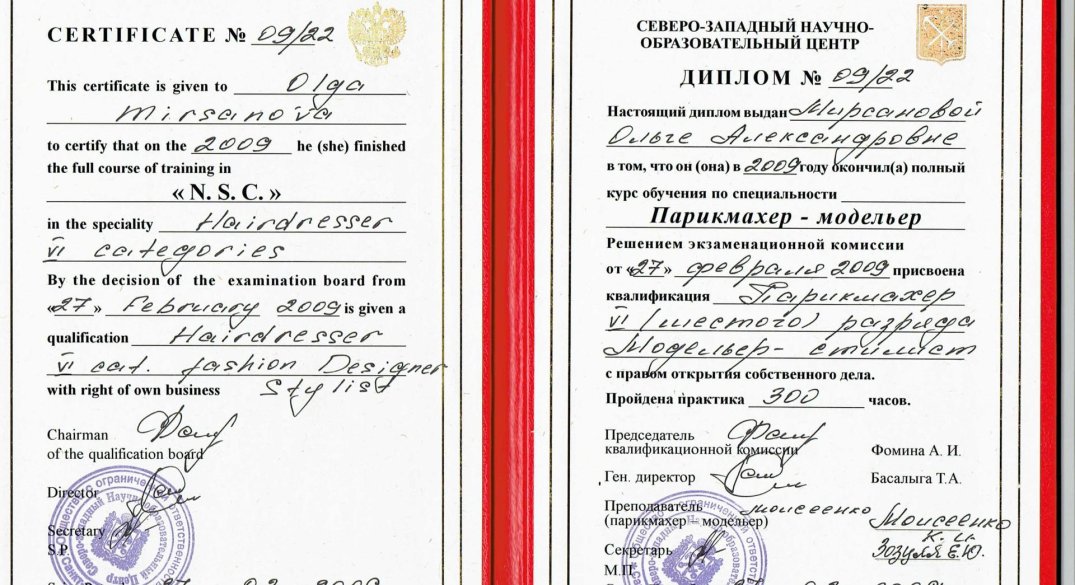 CERTIFICATE № 09/22
This certificate is given to Olga
Mirsanova
to certify that on the 2009 he (she) finished
the full course of training in
« N. S. C. »
in the speciality Hairdresser
VI categories
By the decision of the examination board from
«27» February 2009 is given a
qualification Hairdresser
VI cat. fashion Designer
with right of own business Stylist
Chairman
of the qualification board
Director
Secretary
S.P.
СЕВЕРО-ЗАПАДНЫЙ НАУЧНО-
ОБРАЗОВАТЕЛЬНЫЙ ЦЕНТР
ДИПЛОМ № 09/22
Настоящий диплом выдан Мирсановой
Ольге Александровне
в том, что он (она) в 2009 году окончил(а) полный
курс обучения по специальности
Парикмахер - модельер
Решением экзаменационной комиссии
от «27» февраля 2009 присвоена
квалификация Парикмахер
VI (шестого) разряда
Модельер - стилист
с правом открытия собственного дела.
Пройдена практика 300 часов.
Председатель
квалификационной комиссии Фомина А. И.
Ген. директор Басалыга Т.А.
Преподаватель моисеенко Моисеенко
(парикмахер – модельер) К. И.
Секретарь Зозуля Е.Ю.
М.П.